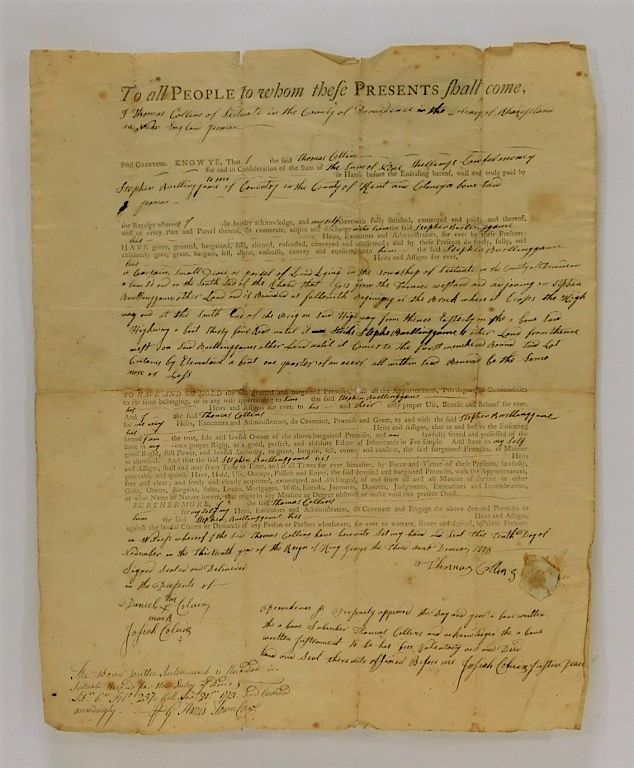 To all PEOPLE to whom these PRESENTS shall come,
I Thomas Collins of Scituate in the County of Providence in the Colony of Rhoad Island
in New England yeoman
Send GREETING. KNOW YE, That I the said Thomas Collins
for and in Consideration of the Sum of the Sum of Shillings Lawful money
to me in Hand, before the Ensealing hereof, well and truly paid by
Stephen Burllinggame of Coventry in the County of Kent and Coloney a bove Said
yeoman
the Receipt whereof I do hereby acknowledge, and my self therewith fully satisfied, contented and paid; and thereof,
and of every Part and Parcel thereof, do exonerate, acquit and discharge the said Stephen Burllinggame
his Heirs, Executors and Administrators, for ever by these Presents:
HAVE given, granted, bargained, sold, aliened, enfeoffed, conveyed and confirmed; and by these Presents do freely, fully, and
absolutely give, grant, bargain, sell, aliene, enfeoff, convey and confirm, unto him the said Stephen Burllinggame
his Heirs and Assigns for ever,
a Certain Small Peace or parsel of Land Lying in the Township of Scituate in the County of Providence
a bove Said on the South Side of the Rhoad that goes from the Furnace westward and a joyning on Stephen
Burllinggames other Land and is Bounded as followeth Begining at the Brook where it Cross the High
way and at the South End of the Bridg on Said Highway from thence Easterly on the a bove Said
Highway a bout thirty four Rod until it Stephen Burllinggame other Land from thence
west on Said Burllinggames other Land until it Comes to the first mentioned Bound Said Lot
Contains by Estemation a bout one quarter of an acear all within Said Bounds be the Same
more or Less
TO HAVE AND TO HOLD the said granted and bargained Premises, with all the Appurtenances, Privileges and Commodities
to the same belonging, or in any wise appertaining to him the said Stephen Burllinggame
his Heirs and Assigns for ever, to his and their only proper Use, Benefit and Behoof for ever.
And I the said Thomas Collins
for me my Heirs, Executors and Administrators, do Covenant, Promise and Grant, to and with the said Stephen Burllinggame
his Heirs and Assigns, that at and before the Ensealing
hereof I am the true, sole and lawful Owner of the above bargained Premises, and am lawfully seized and possessed of the
same in my own proper Right, as a good, perfect, and absolute Estate of Inheritance in Fee-Simple. And have in my self
good Right, full Power, and lawful Authority, to grant, bargain, sell, convey and confirm, the said bargained Premises, in Manner
as aforesaid. And that the said Stephen Burllinggame his Heirs
and Assigns, shall and may from Time to Time, and at all Times for ever hereafter, by Force and Virtue of these Presents, lawfully,
peaceably and quietly Have, Hold, Use, Occupy, Possess and Enjoy, the said demised and bargained Premises, with the Appurtenances,
free and clear, and freely and clearly acquitted, exonerated and discharged, of and from all and all Manner of former or other
Gifts, Grants, Bargains, Sales, Leases, Mortgages, Wills, Entails, Jointures, Dowries, Judgments, Executions and Incumbrances,
of what Name or Nature soever, that might in any Measure or Degree obstruct or make void this present Deed.
FURTHERMORE, I the said Thomas Collins
for my self my Heirs, Executors, Administrators, do Covenant and Engage the above demised Premises to
him the said Stephen Burllinggame his Heirs and Assigns,
against the lawful Claims or Demands of any Person or Persons whatsoever, for ever to warrant, secure and defend, by these Presents
in Witness whereof I the Said Thomas Collins have hereunto Set my hand and Seal this Tenth Day of
November in the Thirteenth year of the Reign of King George the Third Anno Domini 1773
Signed Sealed and Delivered
in the Presents of
Thomas Collins
Daniel
mark
Josiah
Providence ss Personly appeared the Day and year a bove written
the a bove Subscriber Thomas Collins and acknowledged the a bove
written Instrument to be his free Voluntary act and Deed
hand and Seal thereunto affixed Before me Josiah Justice Peace
The above written Instrument is Recorded in
Scituate
accordingly Harris Town Clerk